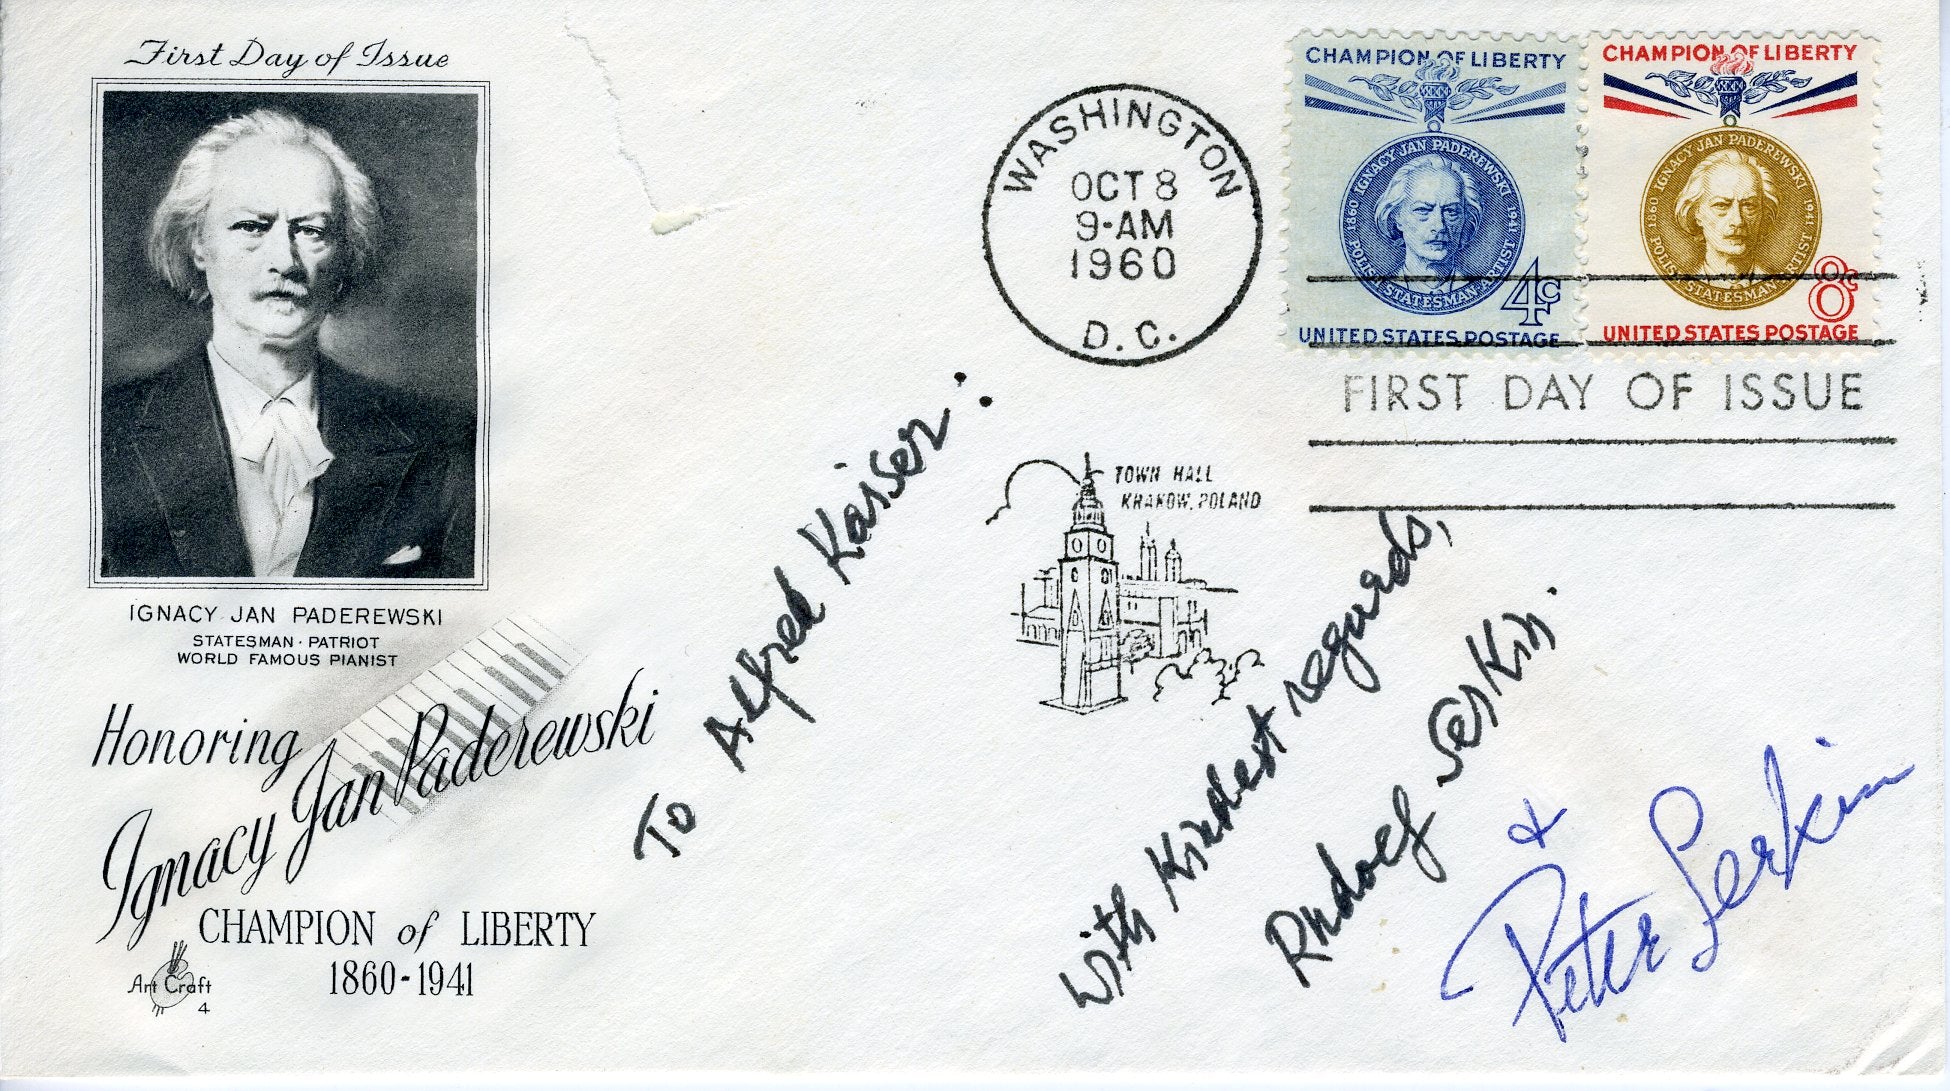 First Day of Issue
IGNACY JAN PADEREWSKI
STATESMAN · PATRIOT
WORLD FAMOUS PIANIST
Honoring
Ignacy Jan Paderewski
CHAMPION of LIBERTY
1860-1941
Art Craft
4
WASHINGTON
OCT 8
9-AM
1960
D.C.
CHAMPION OF LIBERTY
IGNACY JAN PADEREWSKI
1860 1941
POLISH STATESMAN-ARTIST
4c
UNITED STATES POSTAGE
CHAMPION OF LIBERTY
IGNACY JAN PADEREWSKI
1860 1941
POLISH STATESMAN-ARTIST
8c
UNITED STATES POSTAGE
FIRST DAY OF ISSUE
TOWN HALL
KRAKOW, POLAND
To Alfred Kaiser:
With Kindest regards,
Rudolf Serkin.
&
Peter Serkin